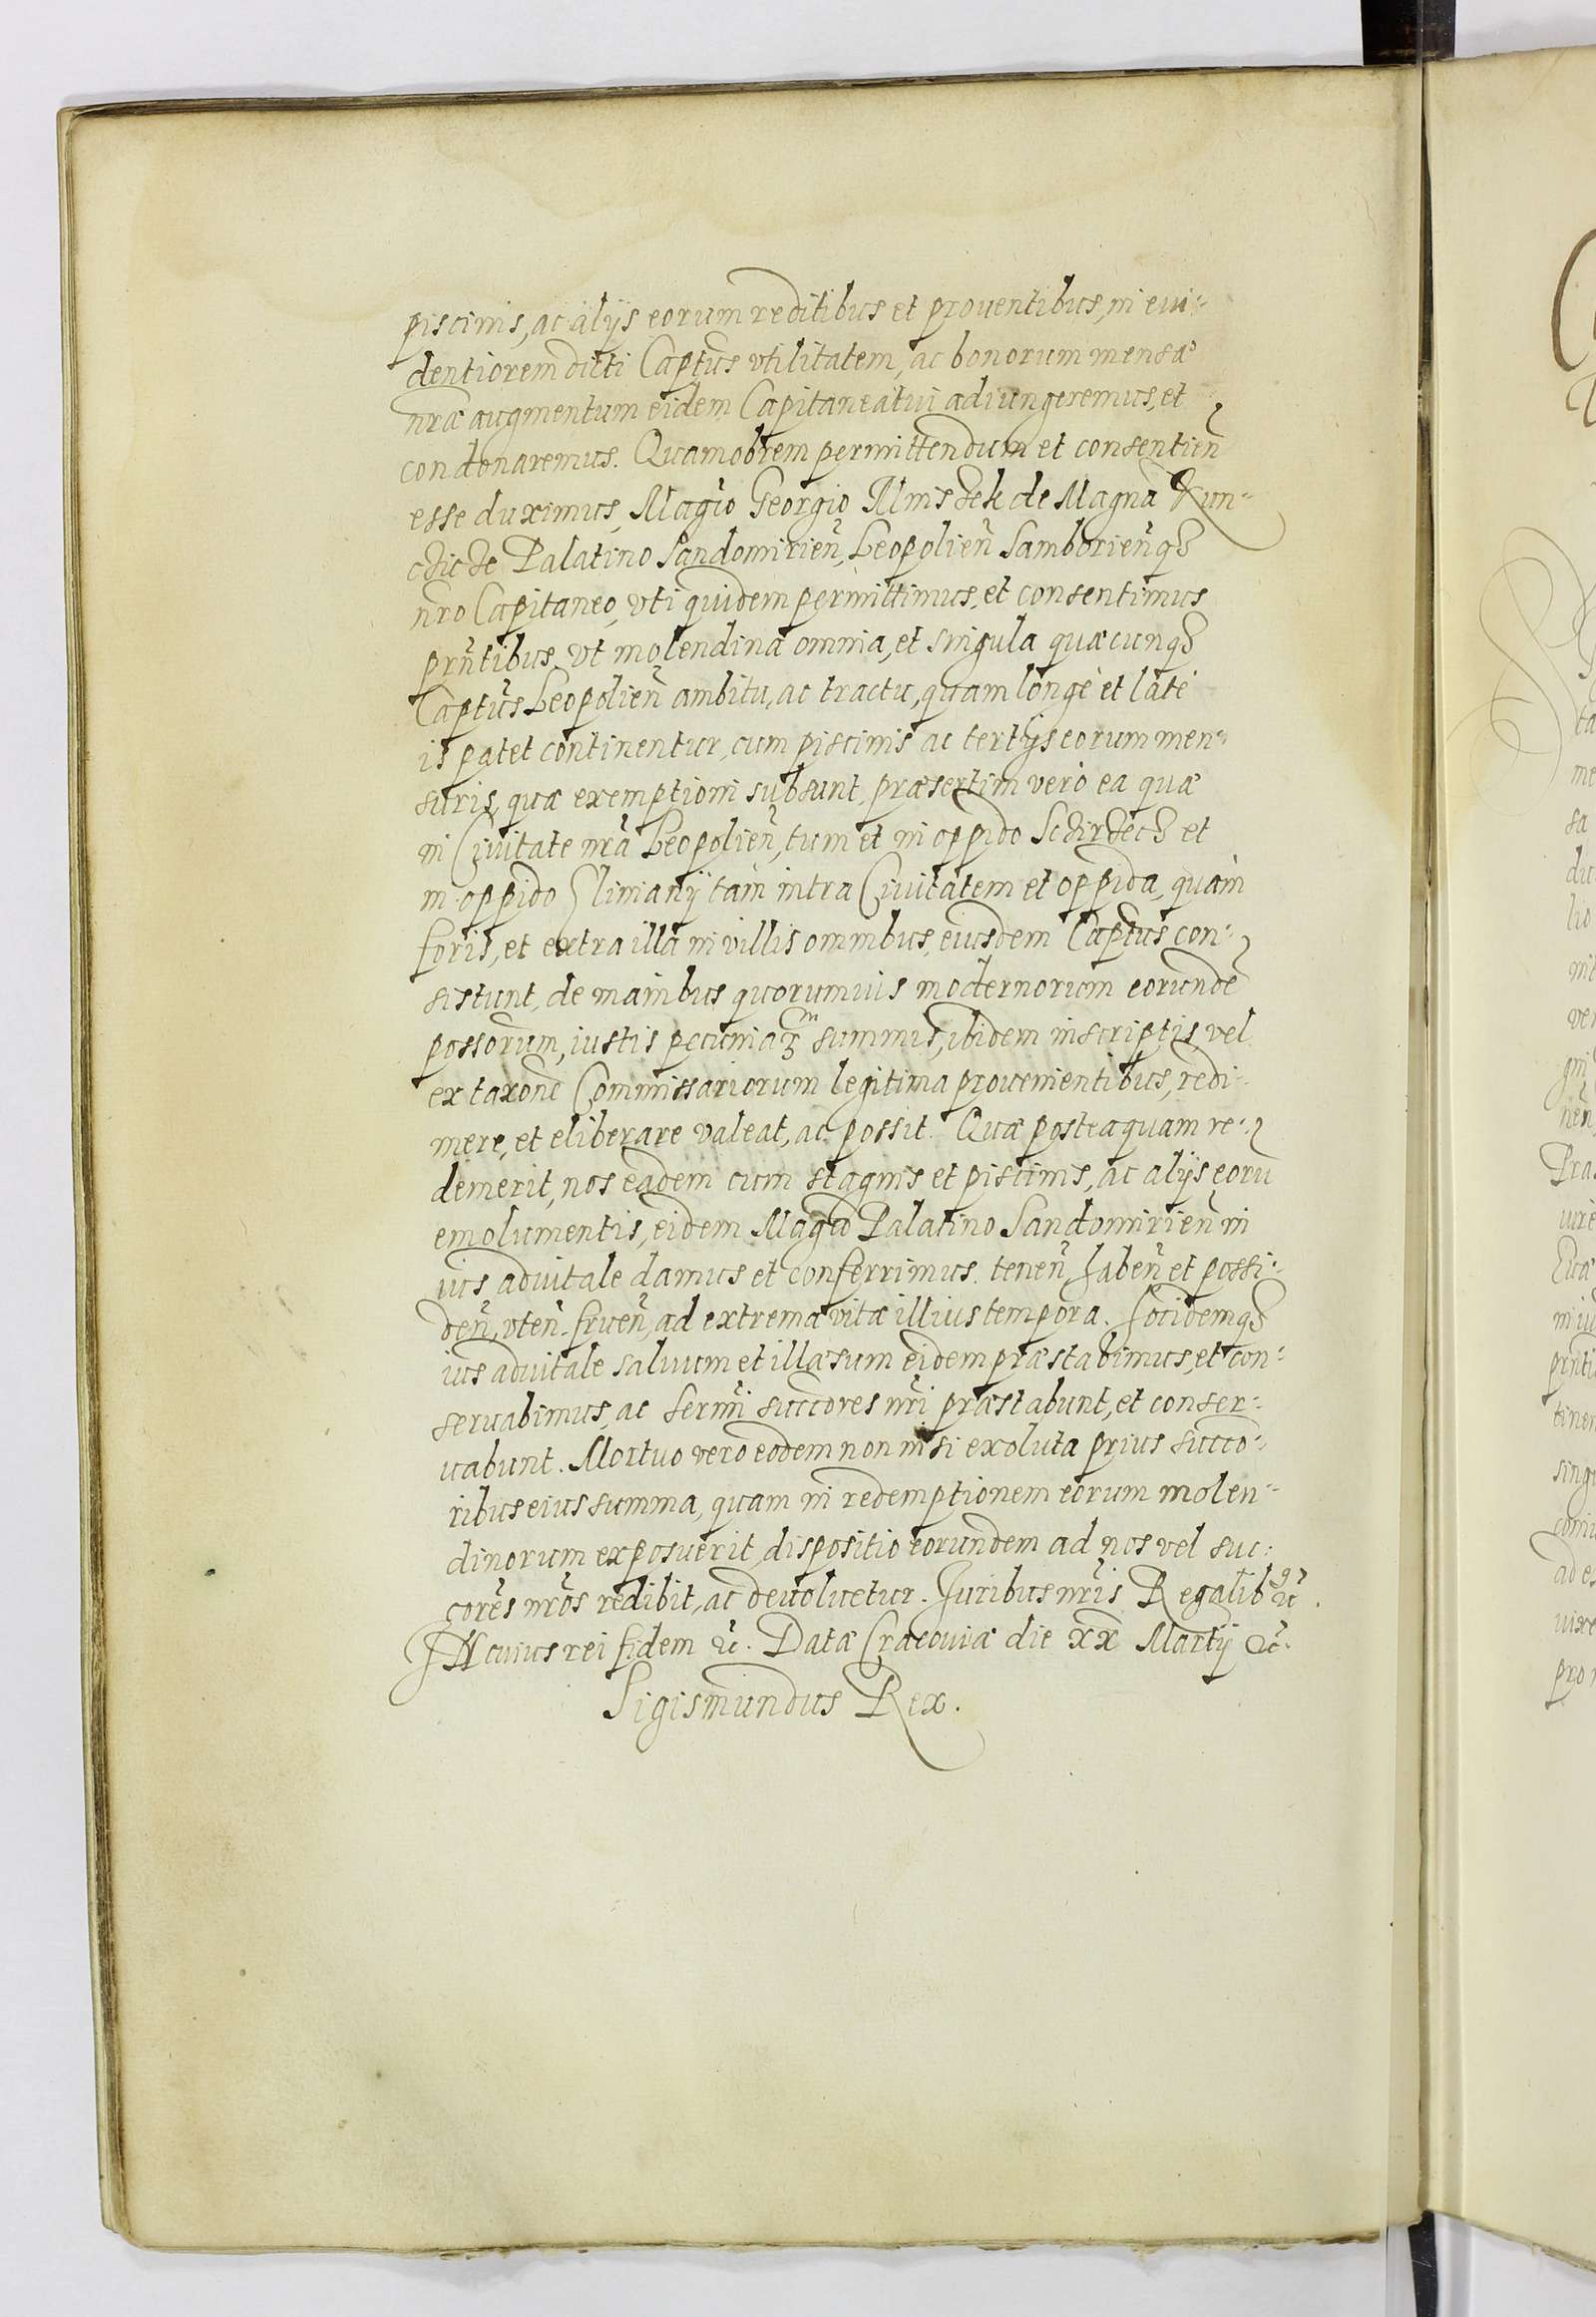 piscinis, ac alijs eorum reditibus et prouentibus, in eui-
dentiorem dicti Captus vtilitatem, ac bonorum mensæ
nræ augmentum eidem Capitaneatui adiungeremus, et
condonaremus. Quamobrem permittendum et consentien
esse duximus, Magco Georgio Mnischek de Magna Kun-
chicze Palatino Sandomirien, Leopolien Samborienq3
nro Capitaneo, vti quidem permittimus, et consentimus
prntibus, vt molendina omnia, et singula quæcunq3
Captus Leopolien ambitu, ac tractu, quam longè et latè
is patet continentur, cum piscinis ac tertijs eorum men-
suris, quæ exemptioni subsunt, præsertim verò ea quæ
in Ciuitate nra Leopolien, tum et in oppido
in oppido tam intra Ciuitatem et oppida, quàm
foris, et extra illa in villis omnibus, eiusdem Captus con-
sistunt, de manibus quorumuis modernorum eorunde
possorum, iustis pecuniaꝝ summis, ibidem inscriptis, vel
ex taxone Commissariorum legitima prouenientibus, redi-
mere, et eliberare valeat, ac possit. Quæ posteaquam re-
demerit, nos eadem cum stagnis et piscinis, ac alijs eoru
emolumentis, eidem Magco Palatino Sandomirien in
ius aduitale damus et conferrimus. tenen haben et possi-
den, vten. fruen, ad extrema vitæ illius tempora. Hocidemq3
ius aduitale saluum et illæsum eidem præstabimus, et con-
seruabimus, ac Sermi succores nri præstabunt, et conser-
uabunt. Mortuo vero eodem non nisi exoluta prius succo-
ribus eius summa, quam in redemptionem eorum molen-
dinorum exposuerit, dispositio eorundem ad nos vel suc-
cores nros redibit, ac deuoluetur. Iuribus nris Regalib9 etc.
IN cuius rei fidem etc. Datæ Cracouiæ die xx Martij etc.
Sigismundus Rex.